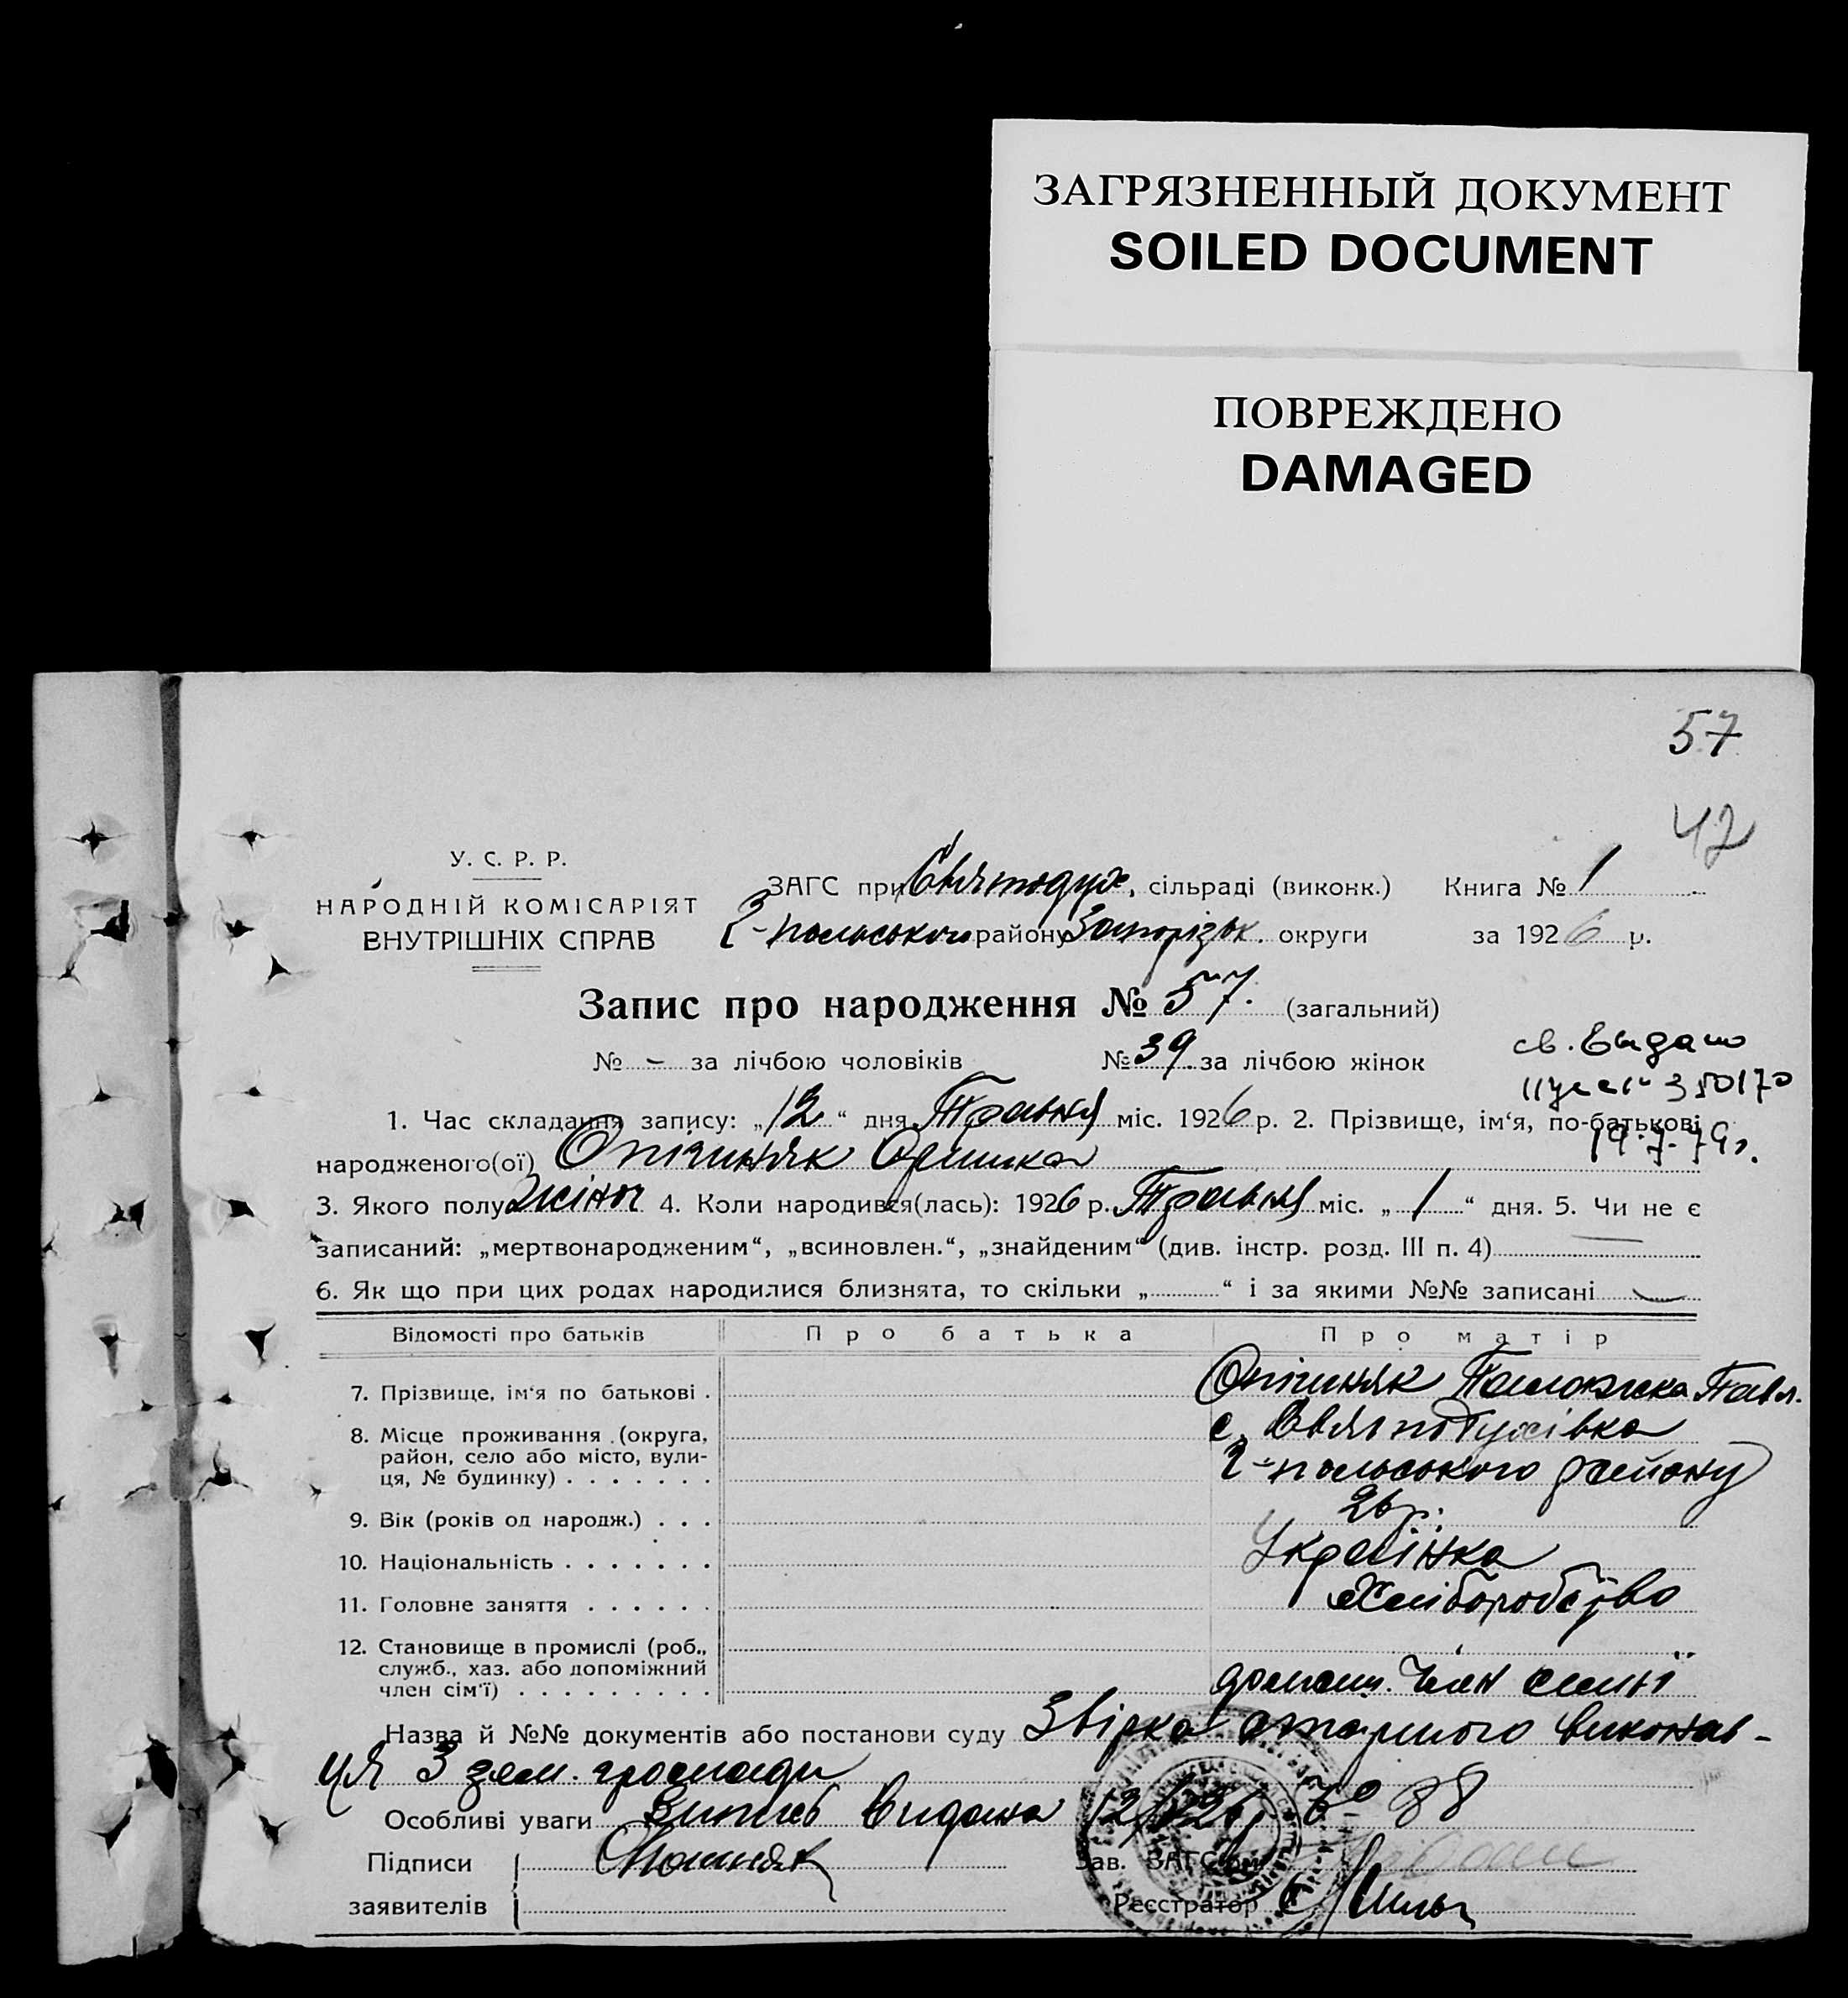 ЗАГРЯЗНЕННЫЙ ДОКУМЕНТ
SOILED DOCUMENT
ПОВРЕЖДЕНО
DAMAGED
57
42
У. С. Р. Р.
НАРОДНІЙ КОМІСАРІЯТ
ВНУТРІШНІХ СПРАВ
ЗАГС при Святодух. сільраді (виконк.) Книга № 1
Г-польського району Запорізьк. округи за 1926 р.
Запис про народження № 57. (загальний)
№ – за лічбою чоловіків № 39. за лічбою жінок
св. выдано
350170
19.7.79г.
1. Час складання запису: „12“ дня Травня міс. 1926 р. 2. Прізвище, ім‘я, по-батькові
народженого(ої) Опішняк Оришка
3. Якого полу жіноч 4. Коли народився(лась): 1926 р. Травня міс. „1“ дня. 5. Чи не є
записаний: „мертвонародженим“, „всиновлен.“, „знайденим“ (див. інстр. розд. III п. 4)
6. Як що при цих родах народилися близнята, то скільки „ “ і за якими №№ записані
Відомості про батьків Про батька Про матір
7. Прізвище, ім‘я по батькові . Опішняк Палажка Павл.
8. Місце проживання (округа, с. Святодухівка
район, село або місто, вули- Г-польського району
ця, № будинку) . . . . . . .
9. Вік (років од народж.) . . . 26 р.
10. Національність . . . . . . . Українка
11. Головне заняття . . . . . . Хліборобство
12. Становище в промислі (роб.,
служб., хаз. або допоміжний
член сім‘ї) . . . . . . . . . допом. член сімї
Назва й №№ документів або постанови суду Звірка старшого виконав-
ця 3 зем. громади
Особливі уваги Випись видана № 88
Підписи Зав. ЗАГС‘ом
заявителів Реєстратор